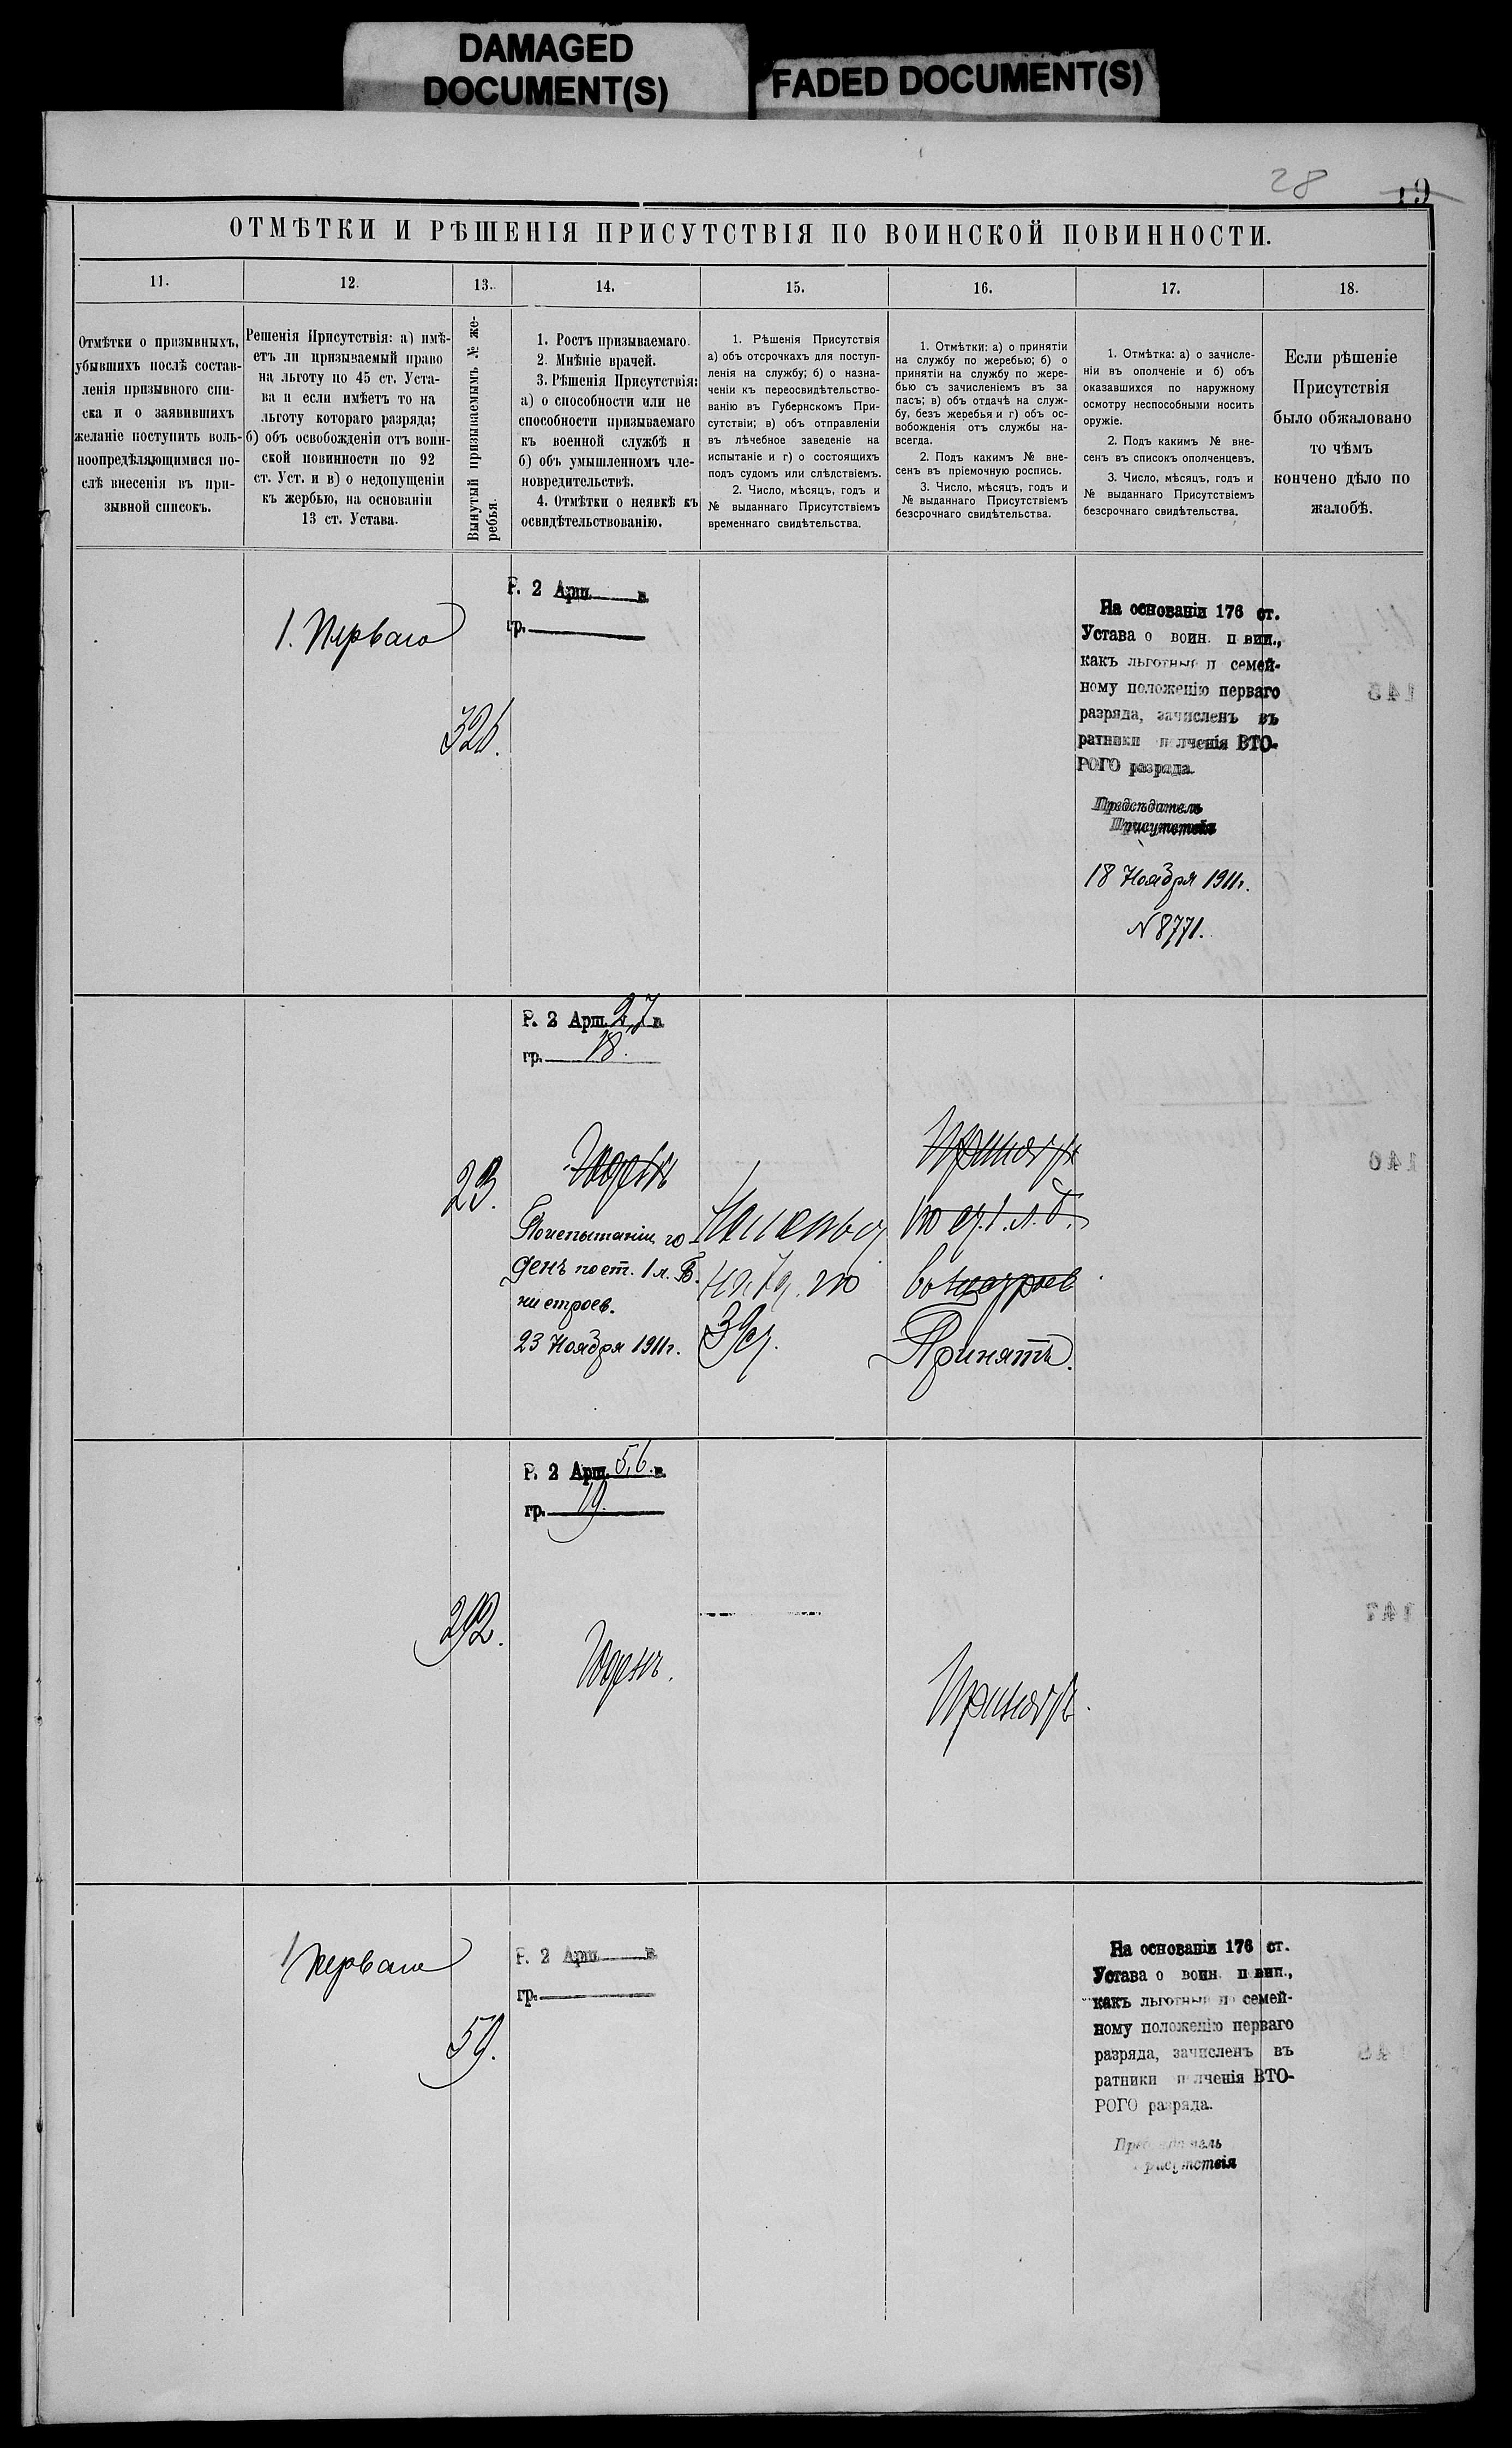 DAMAGED
DOCUMENT(S)
FADED DOCUMENT(S)
28
19
ОТМѢТКИ И РѢШЕНІЯ ПРИСУТСТВІЯ ПО ВОИНСКОЙ ПОВИННОСТИ.
11.
12.
13.
14.
15.
16.
17.
18.
Отмѣтки о призывныхъ,
убывшихъ послѣ состав-
ленія призывного спи-
ска и о заявившихъ
желаніе поступить воль-
ноопредѣляющимися по-
слѣ внесенія въ при-
зывной списокъ.
Решенія Присутствія: а) имѣ-
етъ ли призываемый право
на льготу по 45 ст. Уста-
ва и если имѣетъ то на
льготу котораго разряда;
б) объ освобожденіи отъ воин-
ской повинности по 92
ст. Уст. и в) о недопущеніи
къ жербью, на основаніи
13 ст. Устава.
Вынутый призываемымъ № же-
ребья.
1. Ростъ призываемаго.
2. Мнѣніе врачей.
3. Рѣшенія Присутствія:
а) о способности или не
способности призываемаго
къ военной службѣ и
б) объ умышленномъ чле-
новредительствѣ.
4. Отмѣтки о неявкѣ къ
освидѣтельствованію.
1. Рѣшенія Присутствія
а) объ отсрочкахъ для поступ-
ленія на службу; б) о назна-
ченіи къ переосвидѣтельство-
ванію въ Губернскомъ При-
сутствіи; в) объ отправленіи
въ лѣчебное заведеніе на
испытаніе и г) о состоящихъ
подъ судомъ или слѣдствіемъ.
2. Число, мѣсяцъ, годъ и
№ выданнаго Присутствіемъ
временнаго свидѣтельства.
1. Отмѣтки: а) о принятіи
на службу по жеребью; б) о
принятіи на службу по жере-
бью съ зачисленіемъ въ за
пасъ; в) объ отдачѣ на служ-
бу, безъ жеребья и г) объ ос-
вобожденія отъ службы на-
всегда.
2. Подъ какимъ № вне-
сенъ въ пріемочную роспись.
3. Число, мѣсяцъ, годъ и
№ выданнаго Присутствіемъ
безсрочнаго свидѣтельства.
1. Отмѣтка: а) о зачисле-
ніи въ ополченіе и б) объ
оказавшихся по наружному
осмотру неспособными носить
оружіе.
2. Подъ какимъ № вне-
сенъ въ списокъ ополченцевъ.
3. Число, мѣсяцъ, годъ и
№ выданнаго Присутствіемъ
безсрочнаго свидѣтельства.
Если рѣшеніе
Присутствія
было обжаловано
то чѣмъ
кончено дѣло по
жалобѣ.
1. Перваго
326.
Р. 2 Арш. в.
гр.
На основаніи 176 ст.
Устава о воин. п вин.,
какъ льготный п семей-
ному положенію перваго
разряда, зачисленъ въ
ратники п лченія ВТО-
РОГО разряда.
Предсѣдатель
Присутствія
18 Ноября 1911г.
N 8771.
145
23.
Р. 2 Арш. 2,7 в.
гр. 18.
Годенъ
По испытаніи го
денъ по ст. 1 л. В.
ни строев.
23 Ноября 1911г.
Принятъ
по ст. 1. л. В.
Принятъ.
146
292.
Р. 2 Арш. 5,6. в.
гр. 19.
Годенъ.
Принятъ.
147
1 Перваго
59.
Р. 2 Арш. в.
гр.
На основаніи 176 ст.
Устава о воин. п вин.,
какъ льготный п семей-
ному положенію перваго
разряда, зачисленъ въ
ратники п лченія ВТО-
РОГО разряда.
Предсѣдатель
Присутствія